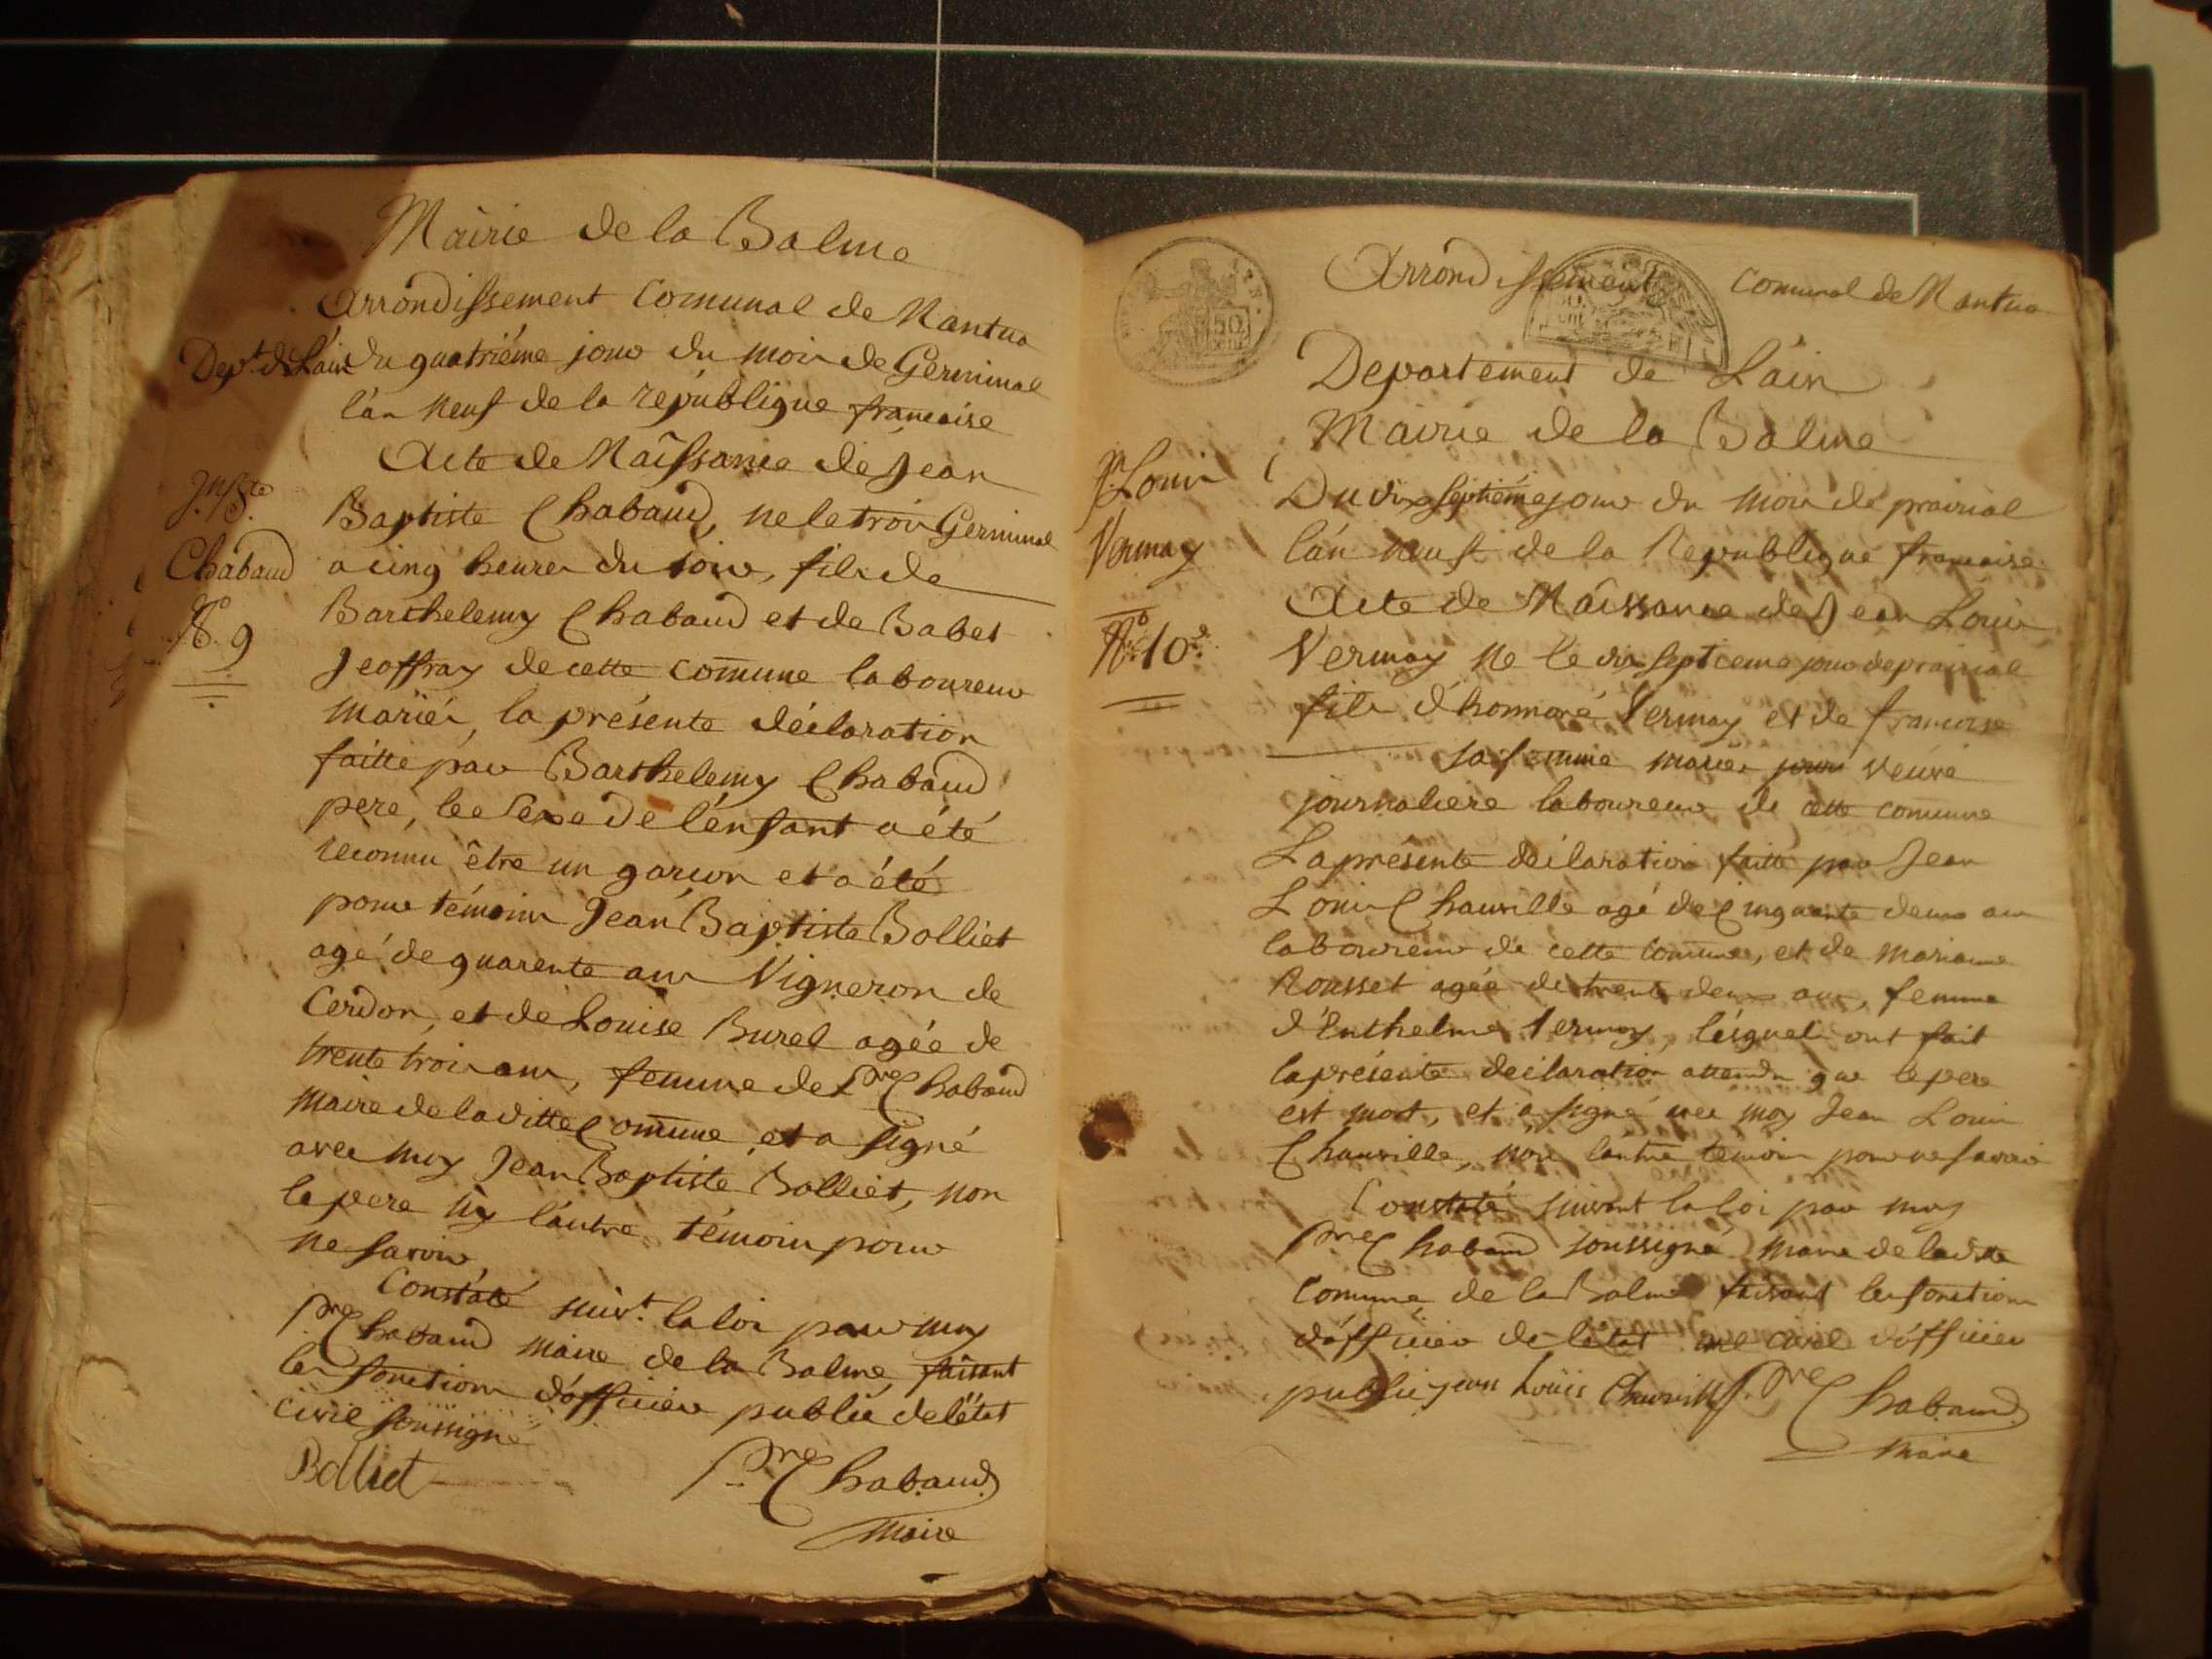 Mairie de la Balme
Arrondissement Comunal de Nantua
Dept. de L'ain du quatriéme jour du mois de Germinal
l'an neuf de la république francaise
Acte de Naissance de Jean
Jn Bte
Chabaud
No. 9
Baptiste Chabaud, ne le trois Germinal
a cinq heures du soir, fils de
Barthelemy Chabaud et de Babet
Jeoffray de cette comune laboureur
mariés, la présente déclaration
faitte par Barthelemy Chabaud
pere, le sexe de l'enfant a été
reconnu être un garcon et a été
pour témoins Jean Baptiste Bolliet
agé de quarente ans Vigneron de
Cerdon, et de Louise Burel agée de
trente trois ans, femme de Pre Chabaud
maire de laditte Comune, et a signé
avec moy Jean Baptiste Bolliet, non
le pere ny l'autre témoin pour
ne savoir
Constaté suivt. la loi par moy
Pre Chabaud maire de la Balme, faisant
les fonctions d'officier public de l'état
civil soussigné
Bolliet
Pre Chabaud
maire
Arrondissement Comunal de Nantua
50
Departement de L'ain
Mairie de la Balme
Jn Louis
Vermay
No. 10e.
Du dix septiéme jour du mois de prairial
l'an neuf de la Republique francaise
Acte de Naissance de Jean Louis
Vermay ne le dix septieme jour de prairial
fils d'honnoré Vermay et de francoise
sa femme mariés veuve
journaliere laboureur de cette comune
La présente déclaration faitte par Jean
Louis Chauville agé de Cinquante deux ans
laboureur de cette comune, et de mariane
Rousset agée de trente deux ans, femme
d'Enthelme Vermay, lesquels ont fait
la présente déclaration attendu que le pere
est mort, et a signé avec moy Jean Louis
Chauville, non l'autre temoin pour ne savoir
Constaté suivant la loi par moy
Pre Chabaud soussigné maire de ladite
Comune de la Balme faisant les fonctions
d'officier de l'état civil d'officier
public jean Louis Chauville Pre Chabaud
maire